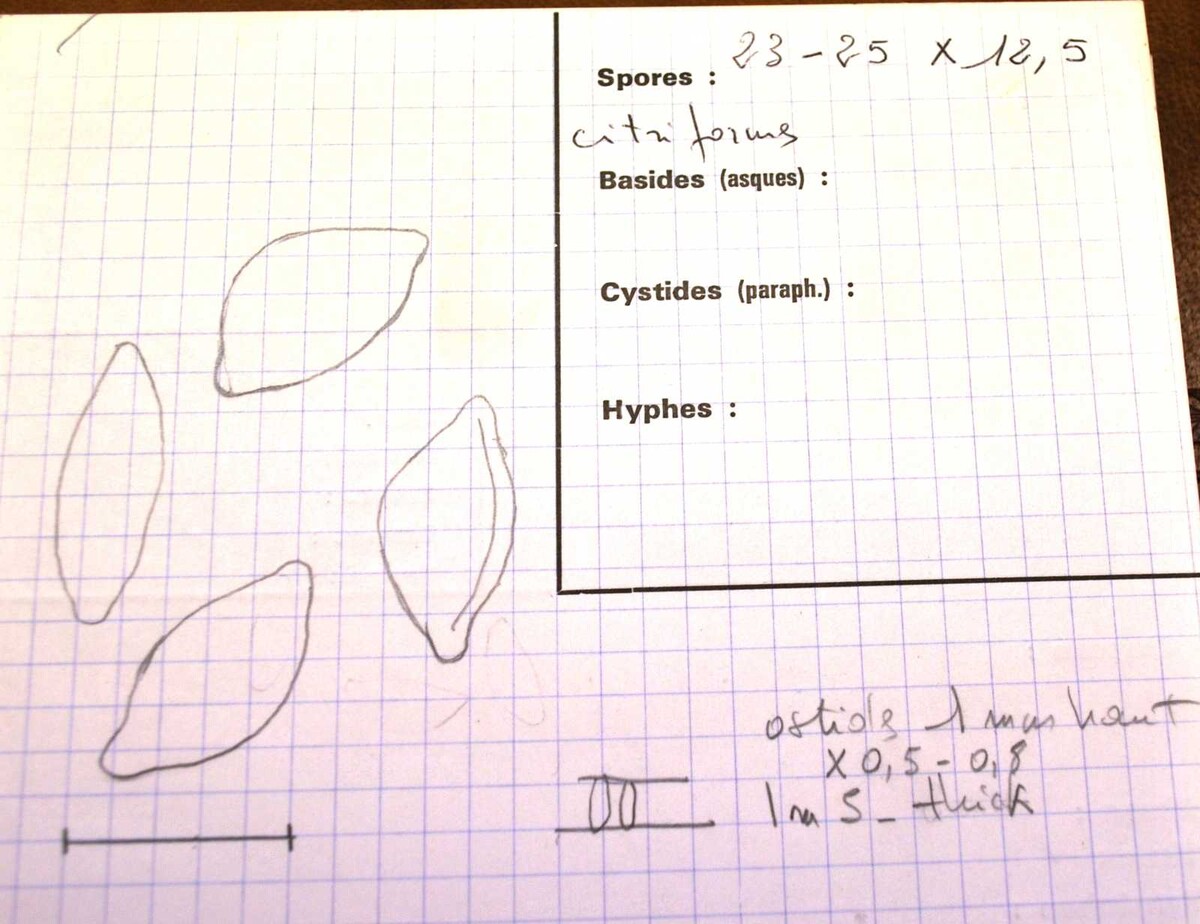 Spores : 23 - 25 x 12,5
citriforms
Basides (asques) :
Cystides (paraph.) :
Hyphes :
ostiole 1 mm haut
x 0,5 - 0,8
1 m 5 - thick